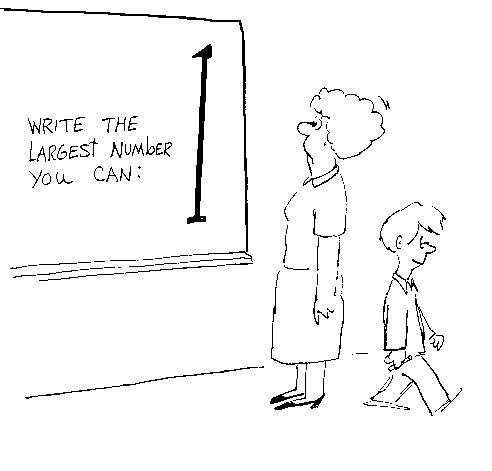 WRITE THE
LARGEST NUMBER
YOU CAN:
1